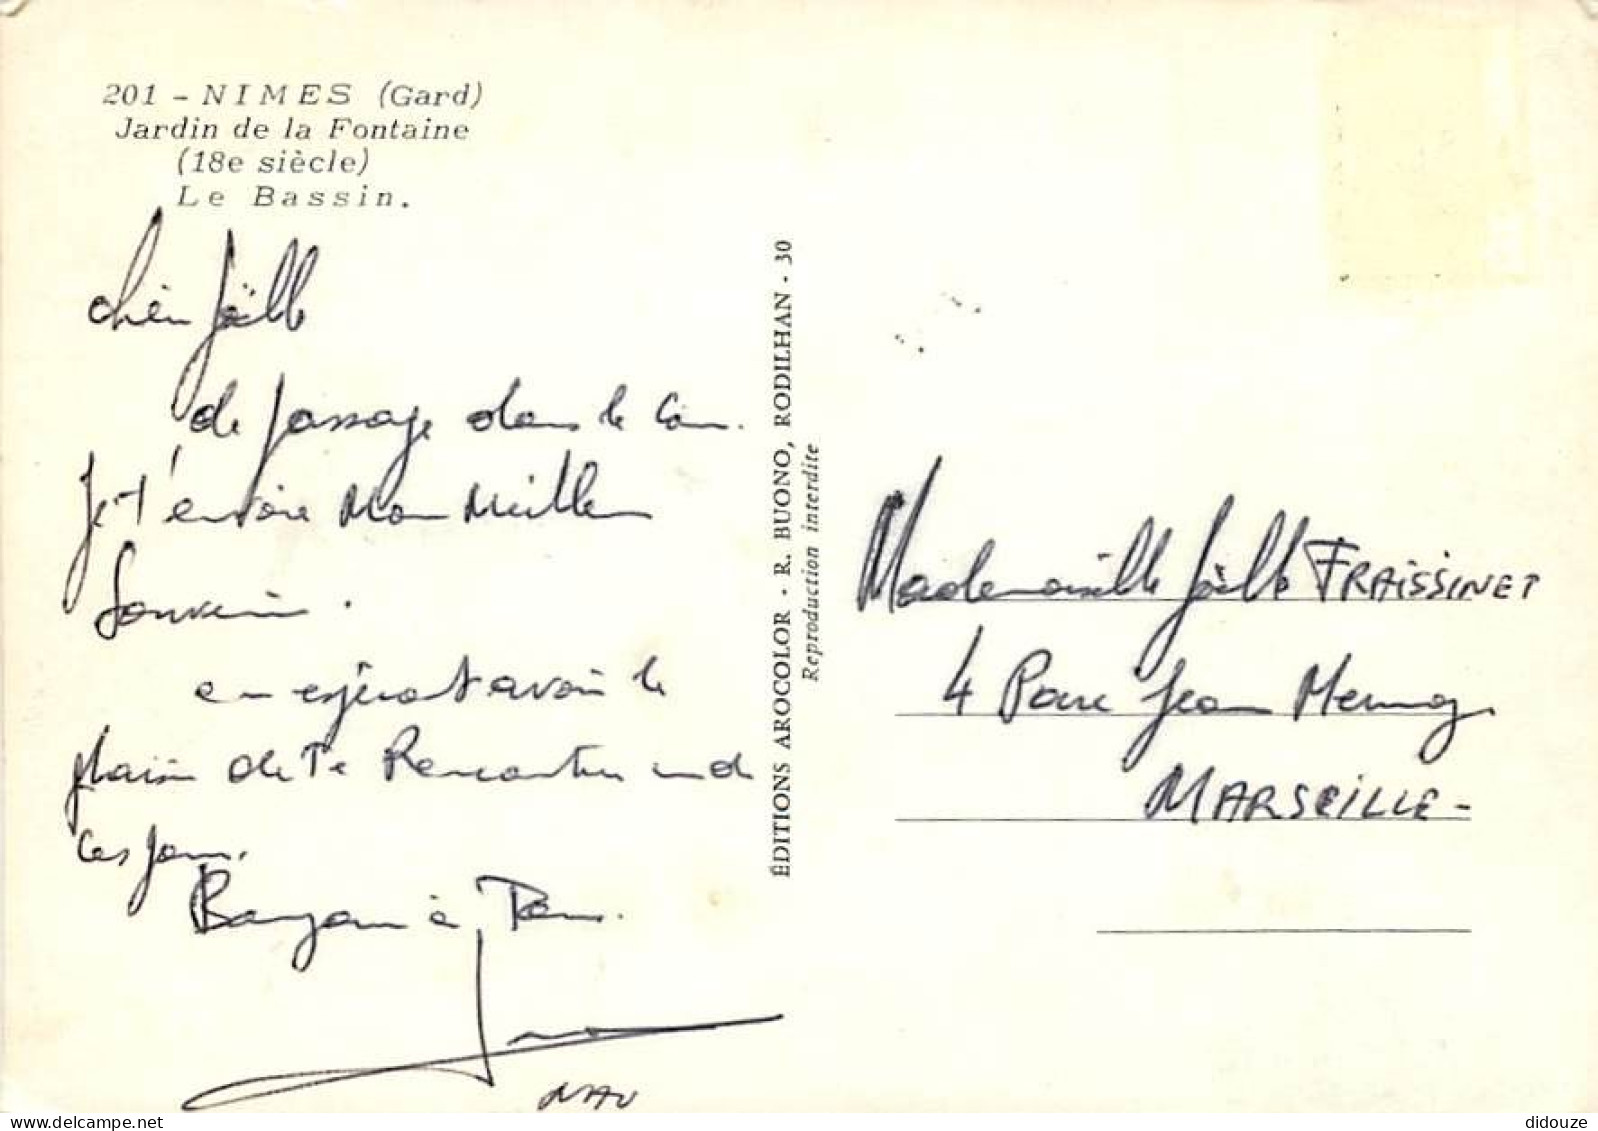 201 - NIMES (Gard)
Jardin de la Fontaine
(18e siècle)
Le Bassin.
chère Joëlle
de passage dans le
Je t'envoie mon meilleur
Souvenir.
en espérant avoir le
plaisir de Te Rencontrer un de
ces jours.
Bonjour à Tous.
ÉDITIONS AROCOLOR - R. BUONO, RODILHAN - 30
Reproduction interdite
Mademoiselle Joëlle FRAISSINET
4 Parc Jean Mermoz
MARSEILLE -
didouze